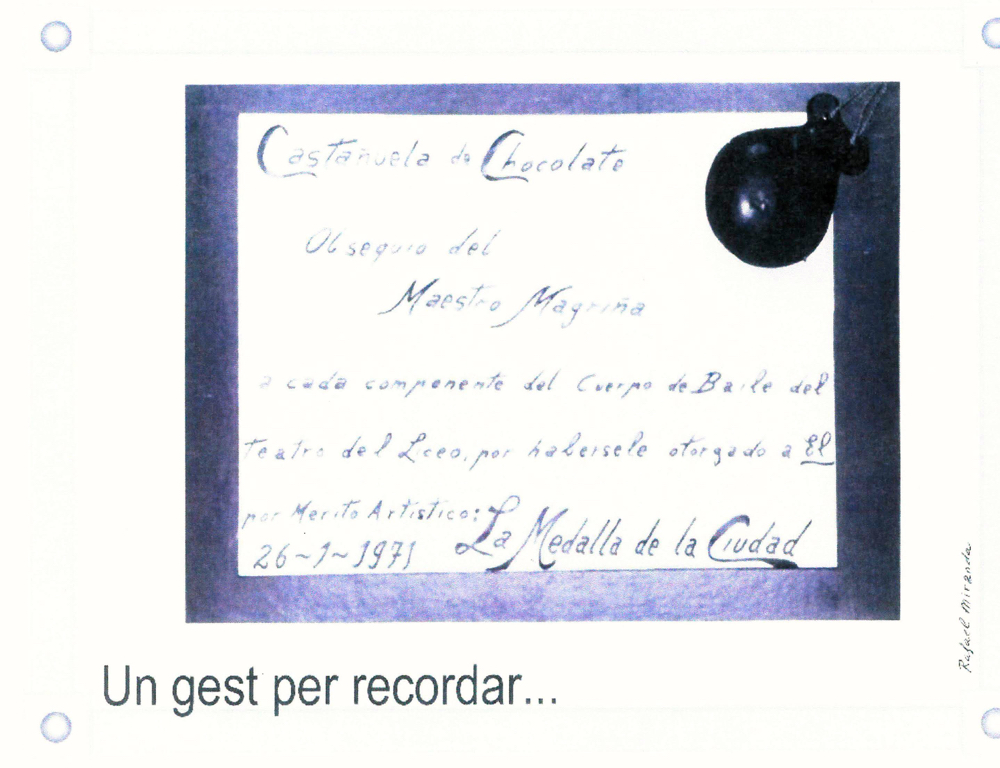 Castañuela de Chocolate
Obsequio del
Maestro Magriña
a cada componente del Cuerpo de Baile del
Teatro del Liceo, por habersele otorgado a El
por Merito Artistico: La Medalla de la Ciudad
26~1~1971
Un gest per recordar...
Rafael Miranda